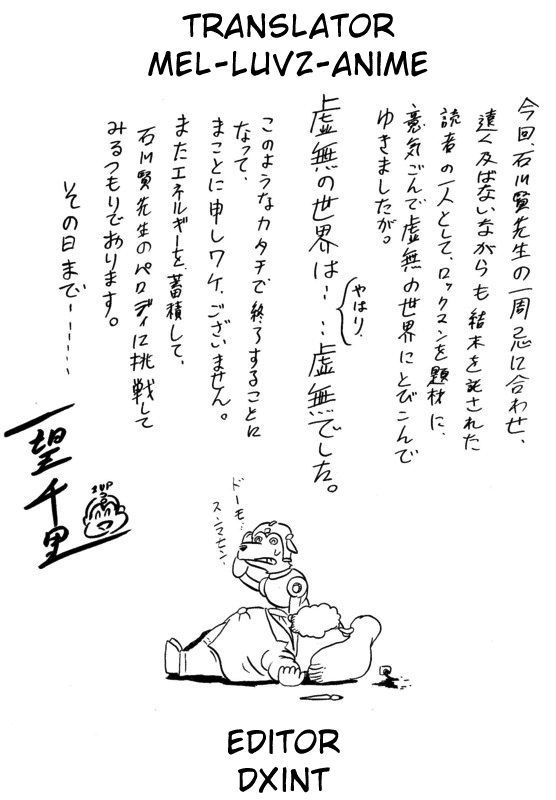 TRANSLATOR
MEL-LUVZ-ANIME
今回、石川賢先生の一周忌に合わせ、
遠く及ばないながらも結末を託された
読者の一人として、ロックマンを題材に、
意気ごんで虚無の世界にとびこんで
ゆきましたが。
虚無の世界は・・・虚無でした。
やはり、
このようなカタチで終了することに
なって、
まことに申しワケ、ございません。
またエネルギーを蓄積して、
石川賢先生のパロディに挑戦して
みるつもりであります。
その日まで・・・・・・
一望千里
1UP
ドーモ…
スンマセン。
EDITOR
DXINT